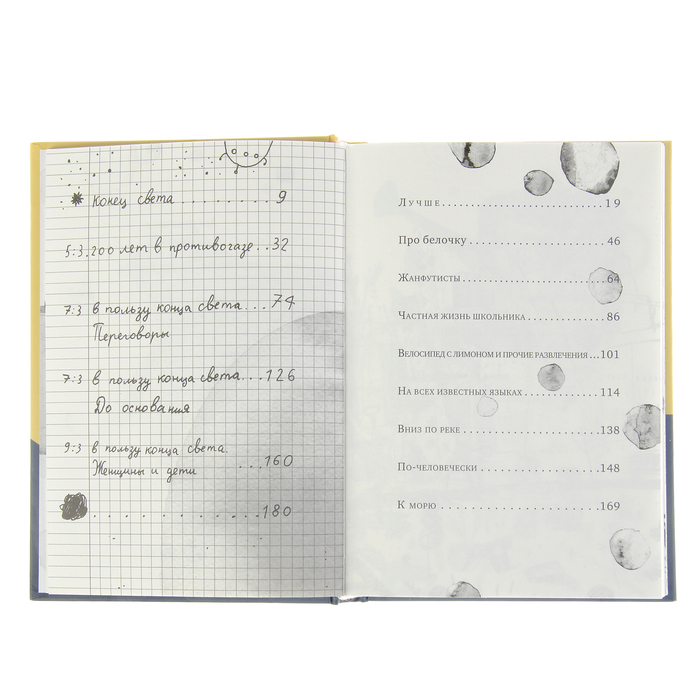 Конец света ......... 9
5:3. 200 лет в противогазе .. 32
7:3 в пользу конца света. ... 74
Переговоры
7:3 в пользу конца света. ... 126
До основания
9:3 в пользу конца света.
Женщины и дети ... 160
............. 180
Лучше ........................ 19
Про белочку ........................ 46
Жанфутисты ........................ 64
Частная жизнь школьника ............. 86
Велосипед с лимоном и прочие развлечения ... 101
На всех известных языках ............. 114
Вниз по реке ........................ 138
По-человечески .................... 148
К морю ........................ 169